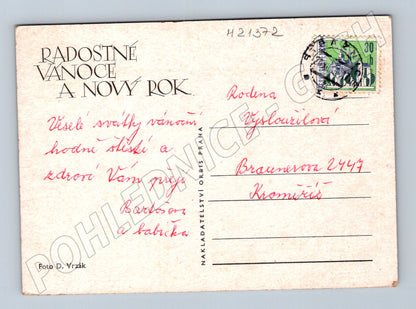 H21372
RADOSTNÉ
VÁNOCE
A NOVÝ ROK
Veselé svátky vánoční
hodně štěstí a
zdraví Vám přeje
a babička
Foto D. Vrzák
NAKLADATELSTVÍ ORBIS PRAHA
30
Rodina
Vysloužilová
Braunerova 2447
Kroměříž
POHLEDNICE